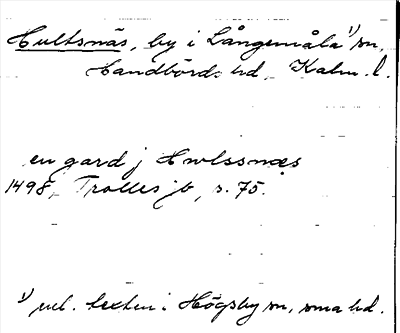 Hultsnäs, by i Långemåla 1) sn,
Handbörds hd, Kalm. l.
en gard j Hwlssnæs
1498, Trolles jb, s. 75.
1) enl. texten i Högsby sn, sma hd.